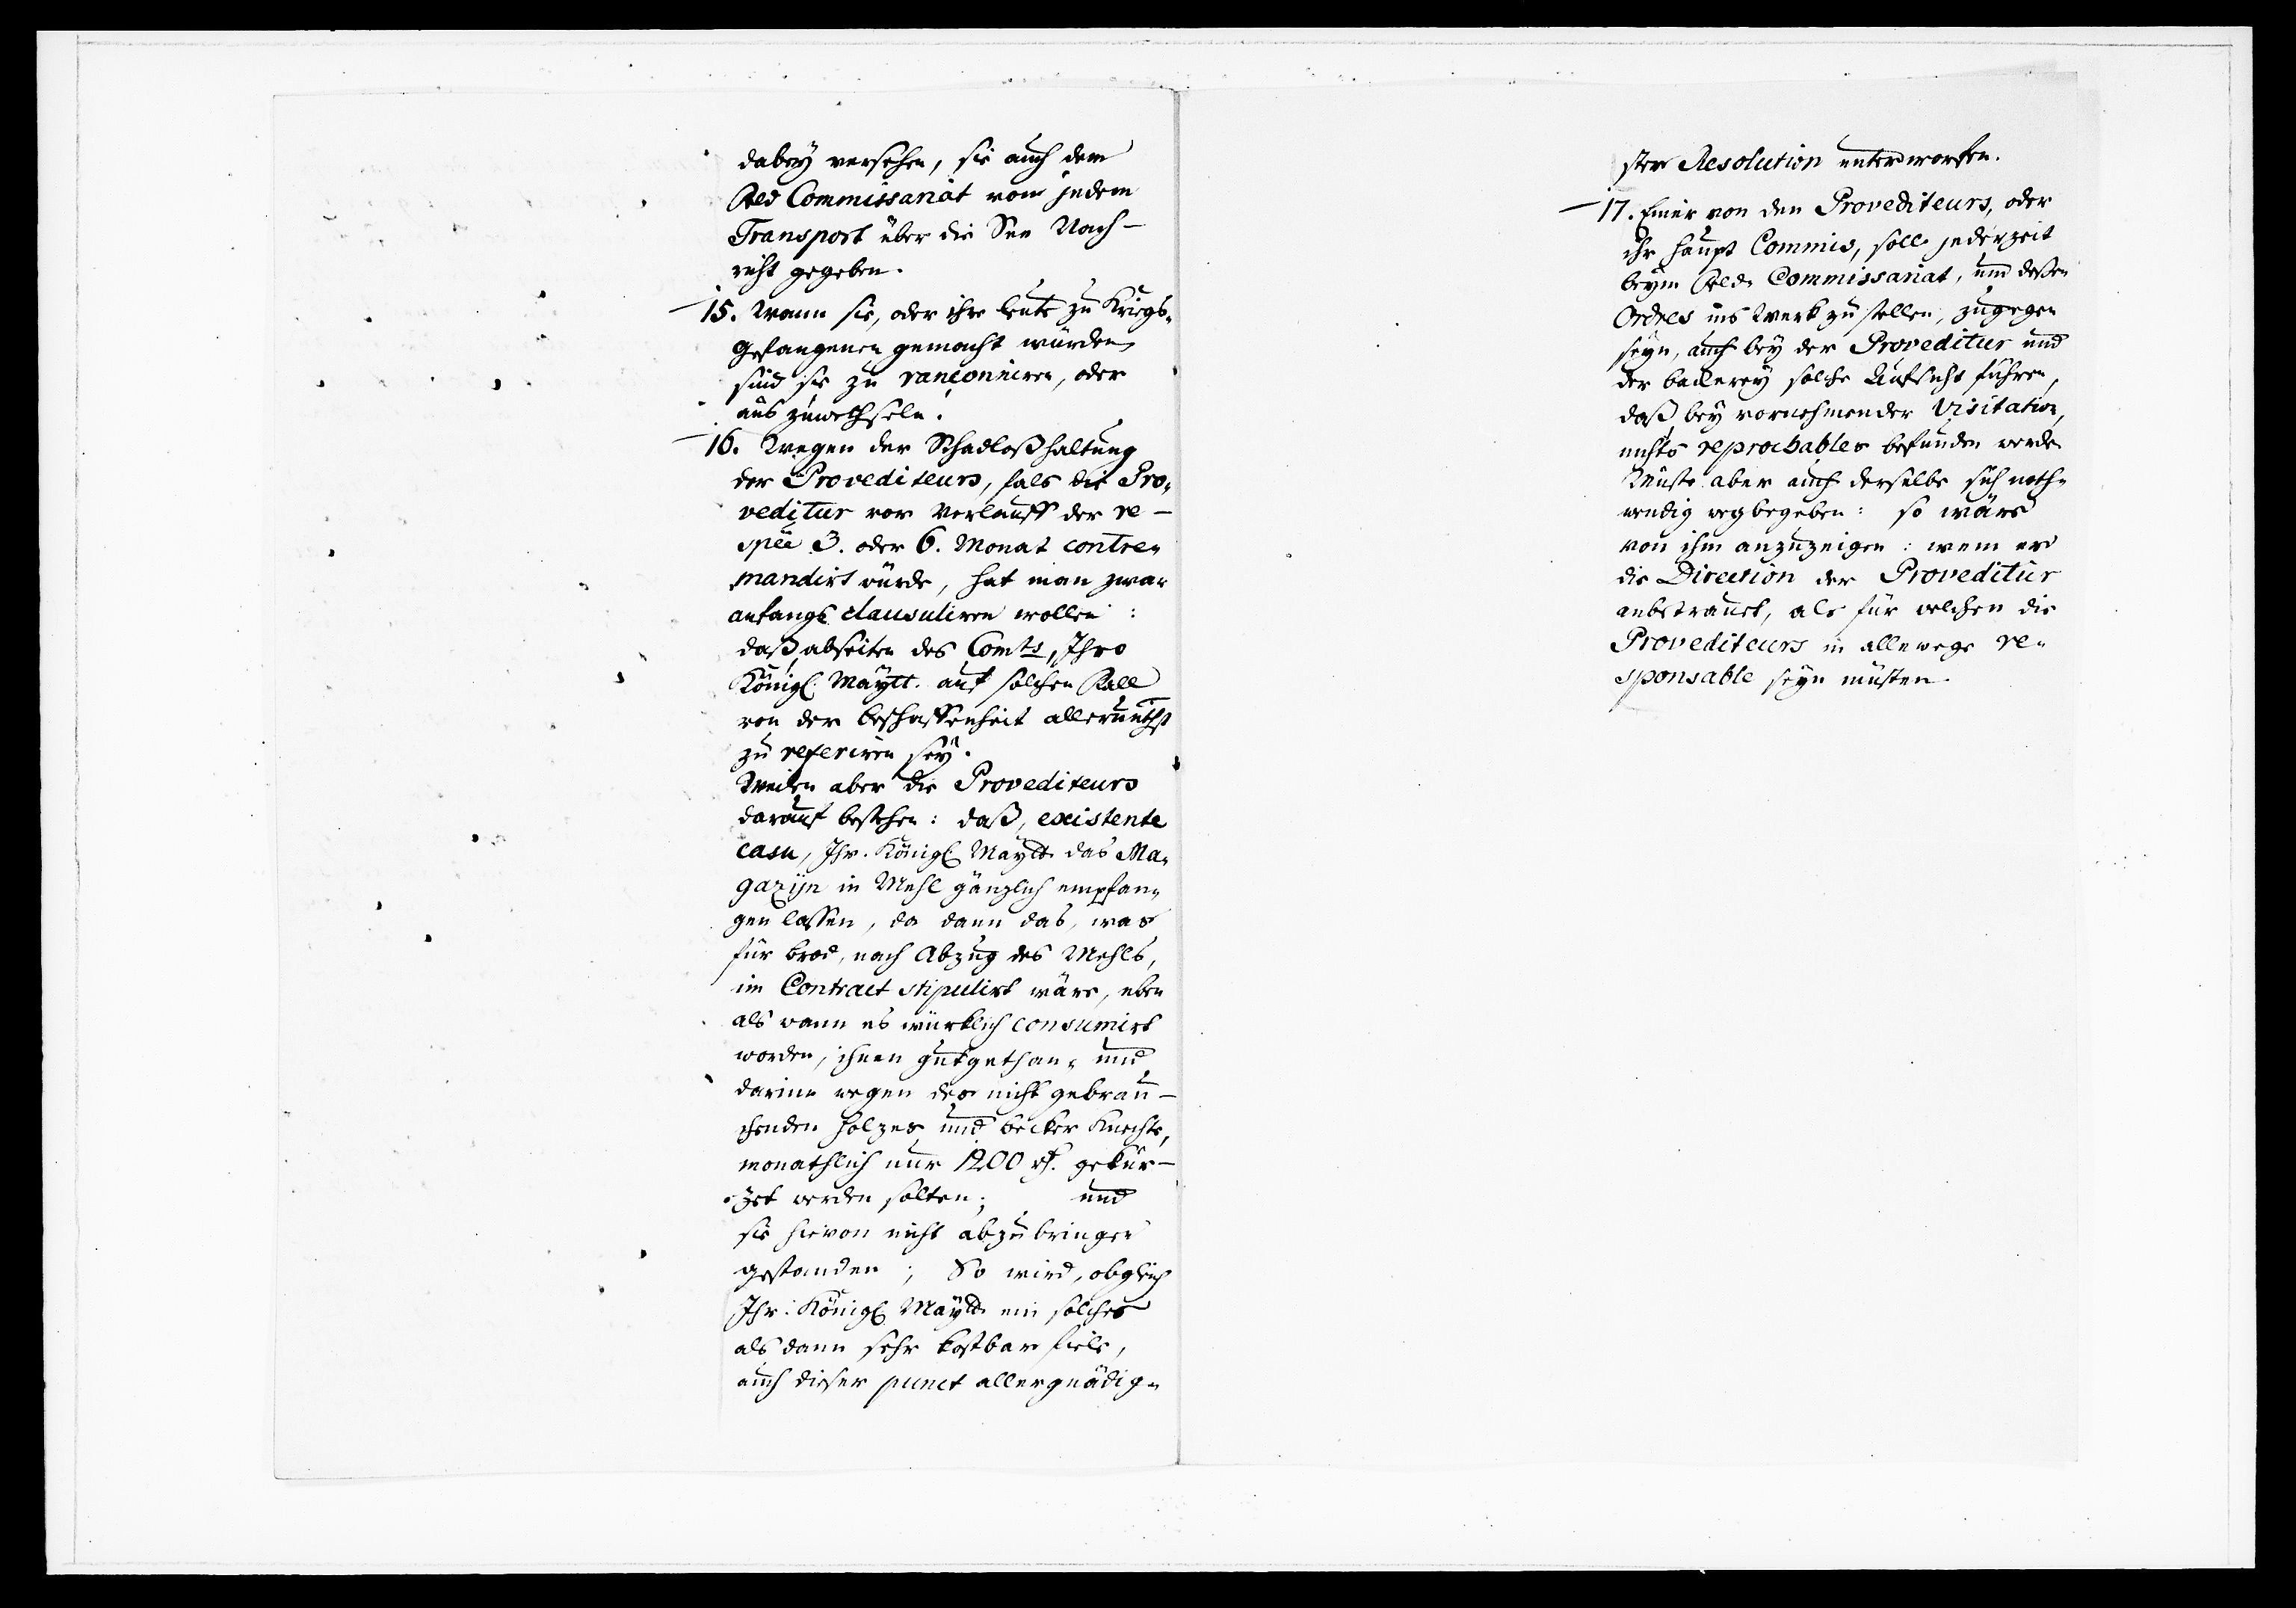 dabeÿ versehen, sie auch dem
Feld Commissariat von jedem
Transport über die See Nach-
richt gegeben.
15. Wann sie, oder ihre leute zu Kriegs-
gefangenen gemacht würden,
sind sie zu ranconniren, oder
auszuwechseln.
16. Wegen der Schadloßhaltung
der Provediteurs, fals die Pro-
veditur vor Verlauff der re-
spée 3. oder 6. Monat contre-
mandirt würde, hat man zwar
anfangs clausuliren wollen:
daß, abseiten des Comts, Ihro
Königl. Maÿtt. auf solchen Fall
von der beschaffenheit allerunthst
zu referiren seÿ.
Weilen aber die Provediteurs
darauf bestehen: daß, existente
casu, Ihr. Königl. Maÿtt. das Ma-
gazijn in Mehl gänzlich empfan-
gen lassen, da dann das, was
für brod, nach Abzug des Mehls,
im Contract stipulirt wäre, eben
als wann es würklich consumirt
worden, ihnen gutgethan- und
darinn wegen des nicht gebrau-
chenden Holzes und becker Knechte,
monathlich nur 1200 rt. gekür-
zet werden solten; und
sie hievon nicht abzubringen
gestanden; So wird, obgleich
Ihr. Königl. Maÿtt. ein solches
als dann sehr kostbar fiele,
auch dieser punct allergnädig-
ster Resolution unterworfen.
17. Einer von den Provediteurs, oder
ihr haupt Commis, soll jederzeit
beÿm Feld Commissariat, um deßen
Ordres ins Werk zu stellen, zugegen
seÿn, auch beÿ der Proveditur und
der beckereÿ solche Aufsicht führen,
daß beÿ vornehmender Visitation,
nichts reprochables befunden werde.
Müste aber auch derselbe sich noth-
wendig wegbegeben: so wäre
von ihm anzuzeigen: wem er
die Direction der Proveditur
anbetrauet, als für welchen die
Provediteurs in allewege re-
sponsable seÿn müsten.